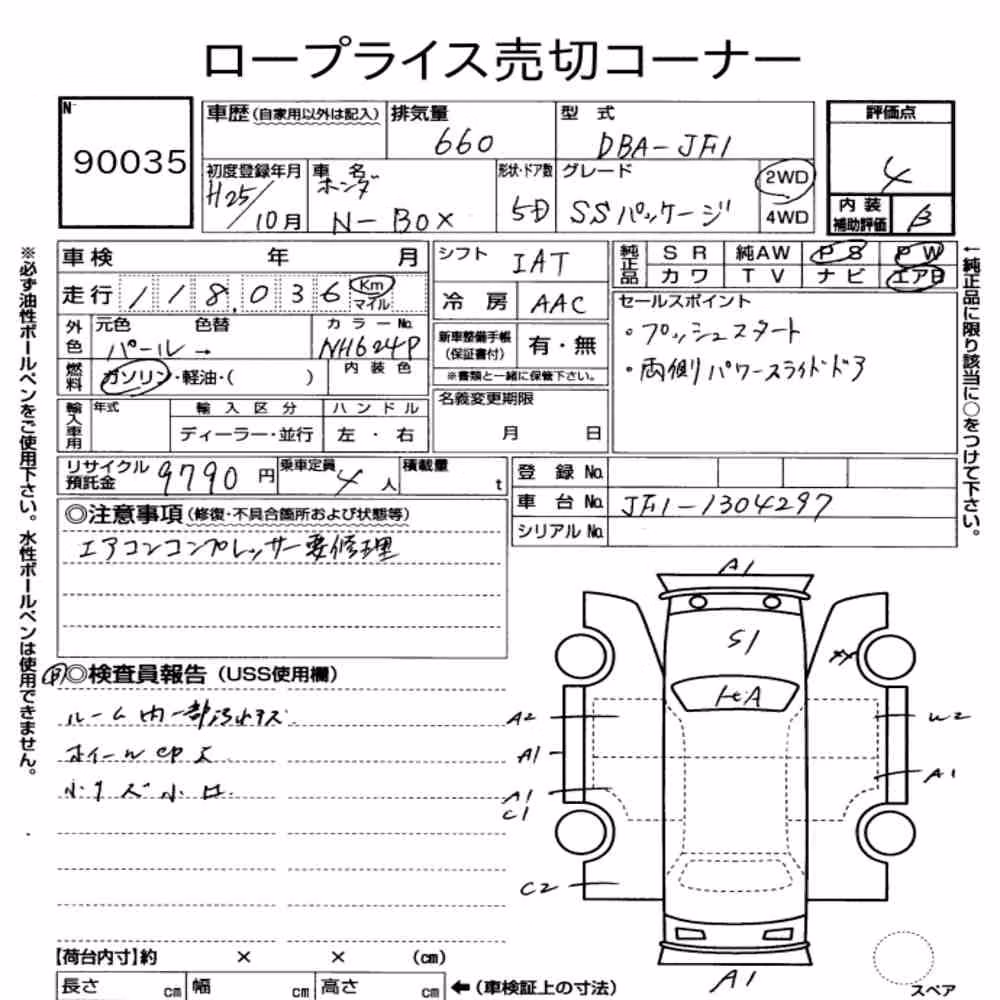 ロープライス売切コーナー
No.
90035
車歴(自家用以外は記入)
排気量
660
型 式
DBA-JF1
評価点
4
初度登録年月
H25/10月
車 名
ホンダ
N-BOX
形状・ドア数
5D
グレード
SSパッケージ
2WD
4WD
内 装
補助評価
B
車検 年 月
走行 118,036 Km
マイル
シフト
IAT
冷 房 AAC
純正品
S R 純AW P S P W
カワ T V ナビ エアB
セールスポイント
・プッシュスタート
・両側パワースライドドア
外色
元色 色替
パール→
カラーNo.
NH624P
燃料
ガソリン・軽油・( )
内 装 色
新車整備手帳
(保証書付)
有・無
※書類と一緒に保管下さい。
輸入車用
年式
輸 入 区 分
ディーラー・並行
ハ ン ド ル
左 ・ 右
名義変更期限
月 日
リサイクル
預託金
9790 円
乗車定員
4 人
積載量
t
登 録 No.
車 台 No. JF1-1304297
シリアル No.
◎注意事項(修復・不具合箇所および状態等)
エアコンコンプレッサー要修理
◎検査員報告(USS使用欄)
ルーム内一部汚れキズ
ホイールcpス
小キズ小凹
A1
S1
A2
W2
A1
A1
A1
C1
C2
A1
スペア
【荷台内寸】約 × × (cm)
長さ cm 幅 cm 高さ cm ←(車検証上の寸法)
※必ず油性ボールペンをご使用下さい。水性ボールペンは使用できません。
←純正品に限り該当に○をつけて下さい。